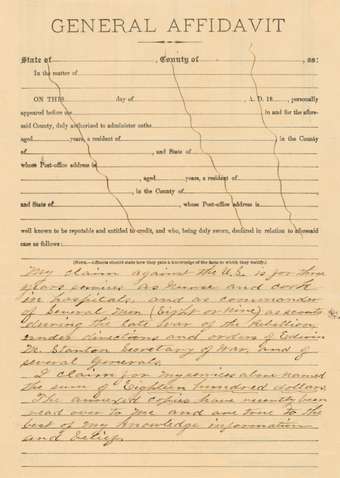 GENERAL AFFIDAVIT
State of , County of , ss:
In the matter of
ON THIS day of , A. D. 18 , personally
appeared before me in and for the afore-
said County, duly authorized to administer oaths
aged years, a resident of in the County
of , and State of
whose Post-office address is
, aged years, a resident of
, in the County of
and State of , whose Post-office address is
well known to be reputable and entitled to credit, and who, being duly sworn, declared in relation to aforesaid
case as follows:
[NOTE.—Affiants should state how they gain a knowledge of the facts to which they testify.]
My claim against the U.S. is for three
years services as Nurse and cook
in hospitals, and as commander
of Several Men (Eight or Nine) as scouts
during the late War of the Rebellion,
under directions and orders of Edwin
M. Stanton Secretary of War, and of
several Generals.
I claim for my services above named
the sum of Eighteen hundred dollars.
The annexed copies have recently been
read over to me and are true to the
best of my knowledge information
and belief.